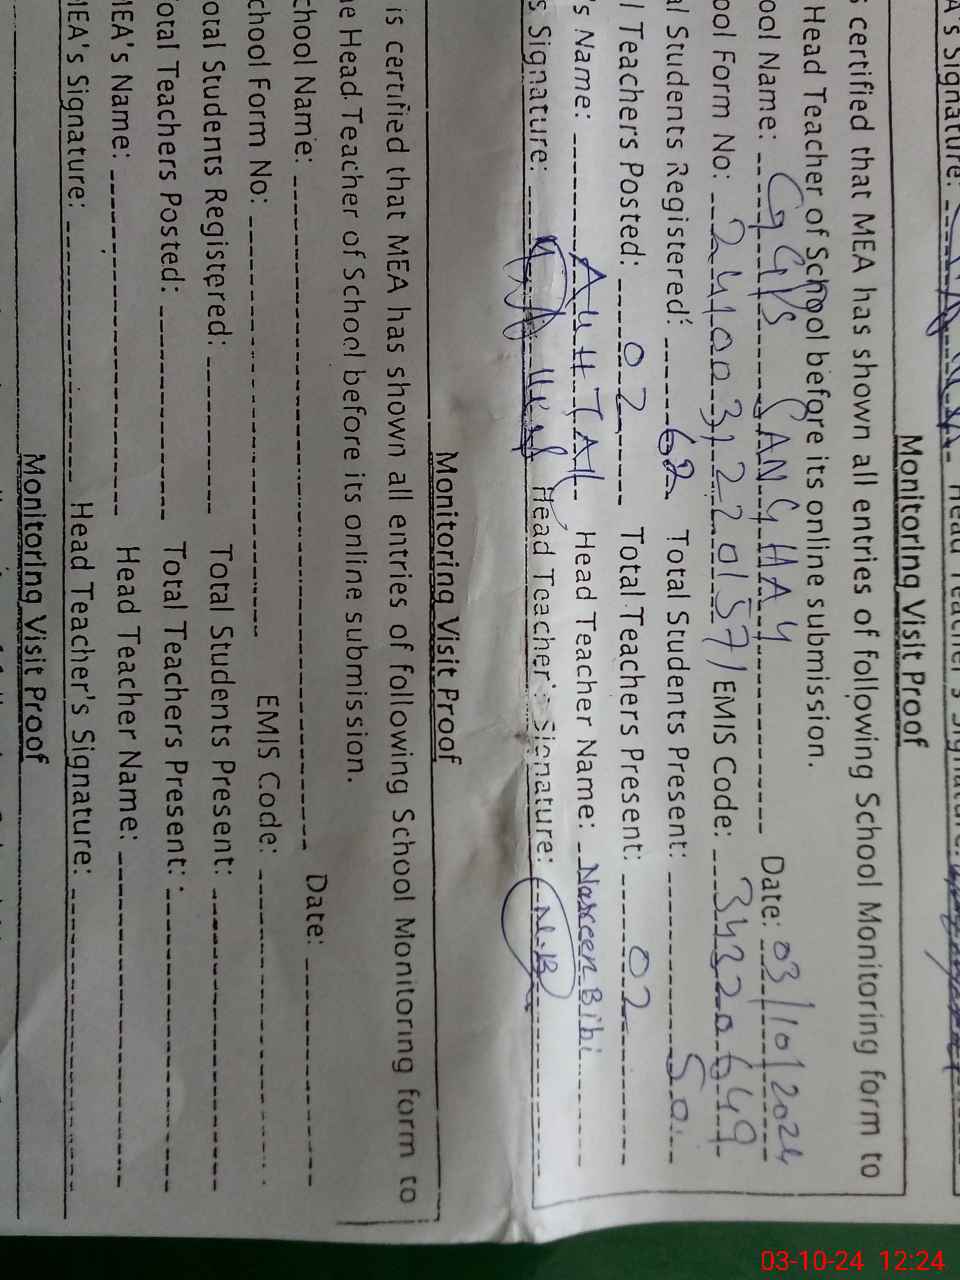 A's Signature:
Monitoring Visit Proof
certified that MEA has shown all entries of following School Monitoring form to
Head Teacher of School before its online submission.
ool Name: GGPS SANGHAAY Date: 03/10/2024
ool Form No: 24100312201571 EMIS Code: 34320649
al Students Registered: 62 Total Students Present: 50
l Teachers Posted: 02 Total Teachers Present: 02
's Name: Head Teacher Name: Nasreen Bibi
s Signature: Head Teacher's Signature: N.B
Monitoring Visit Proof
is certified that MEA has shown all entries of following School Monitoring form to
e Head Teacher of School before its online submission.
chool Name: Date:
chool Form No: EMIS Code:
otal Students Registered: Total Students Present:
otal Teachers Posted: Total Teachers Present:
MEA's Name: Head Teacher Name:
MEA's Signature: Head Teacher's Signature:
Monitoring Visit Proof
03-10-24 12:24